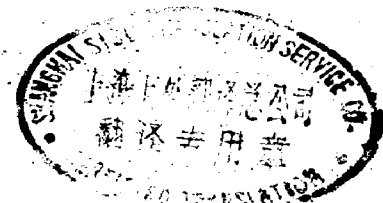 SHANGHAI SISU TRANSLATION SERVICE CO.
上海上外翻译总公司
翻译专用章
TRANSLATION